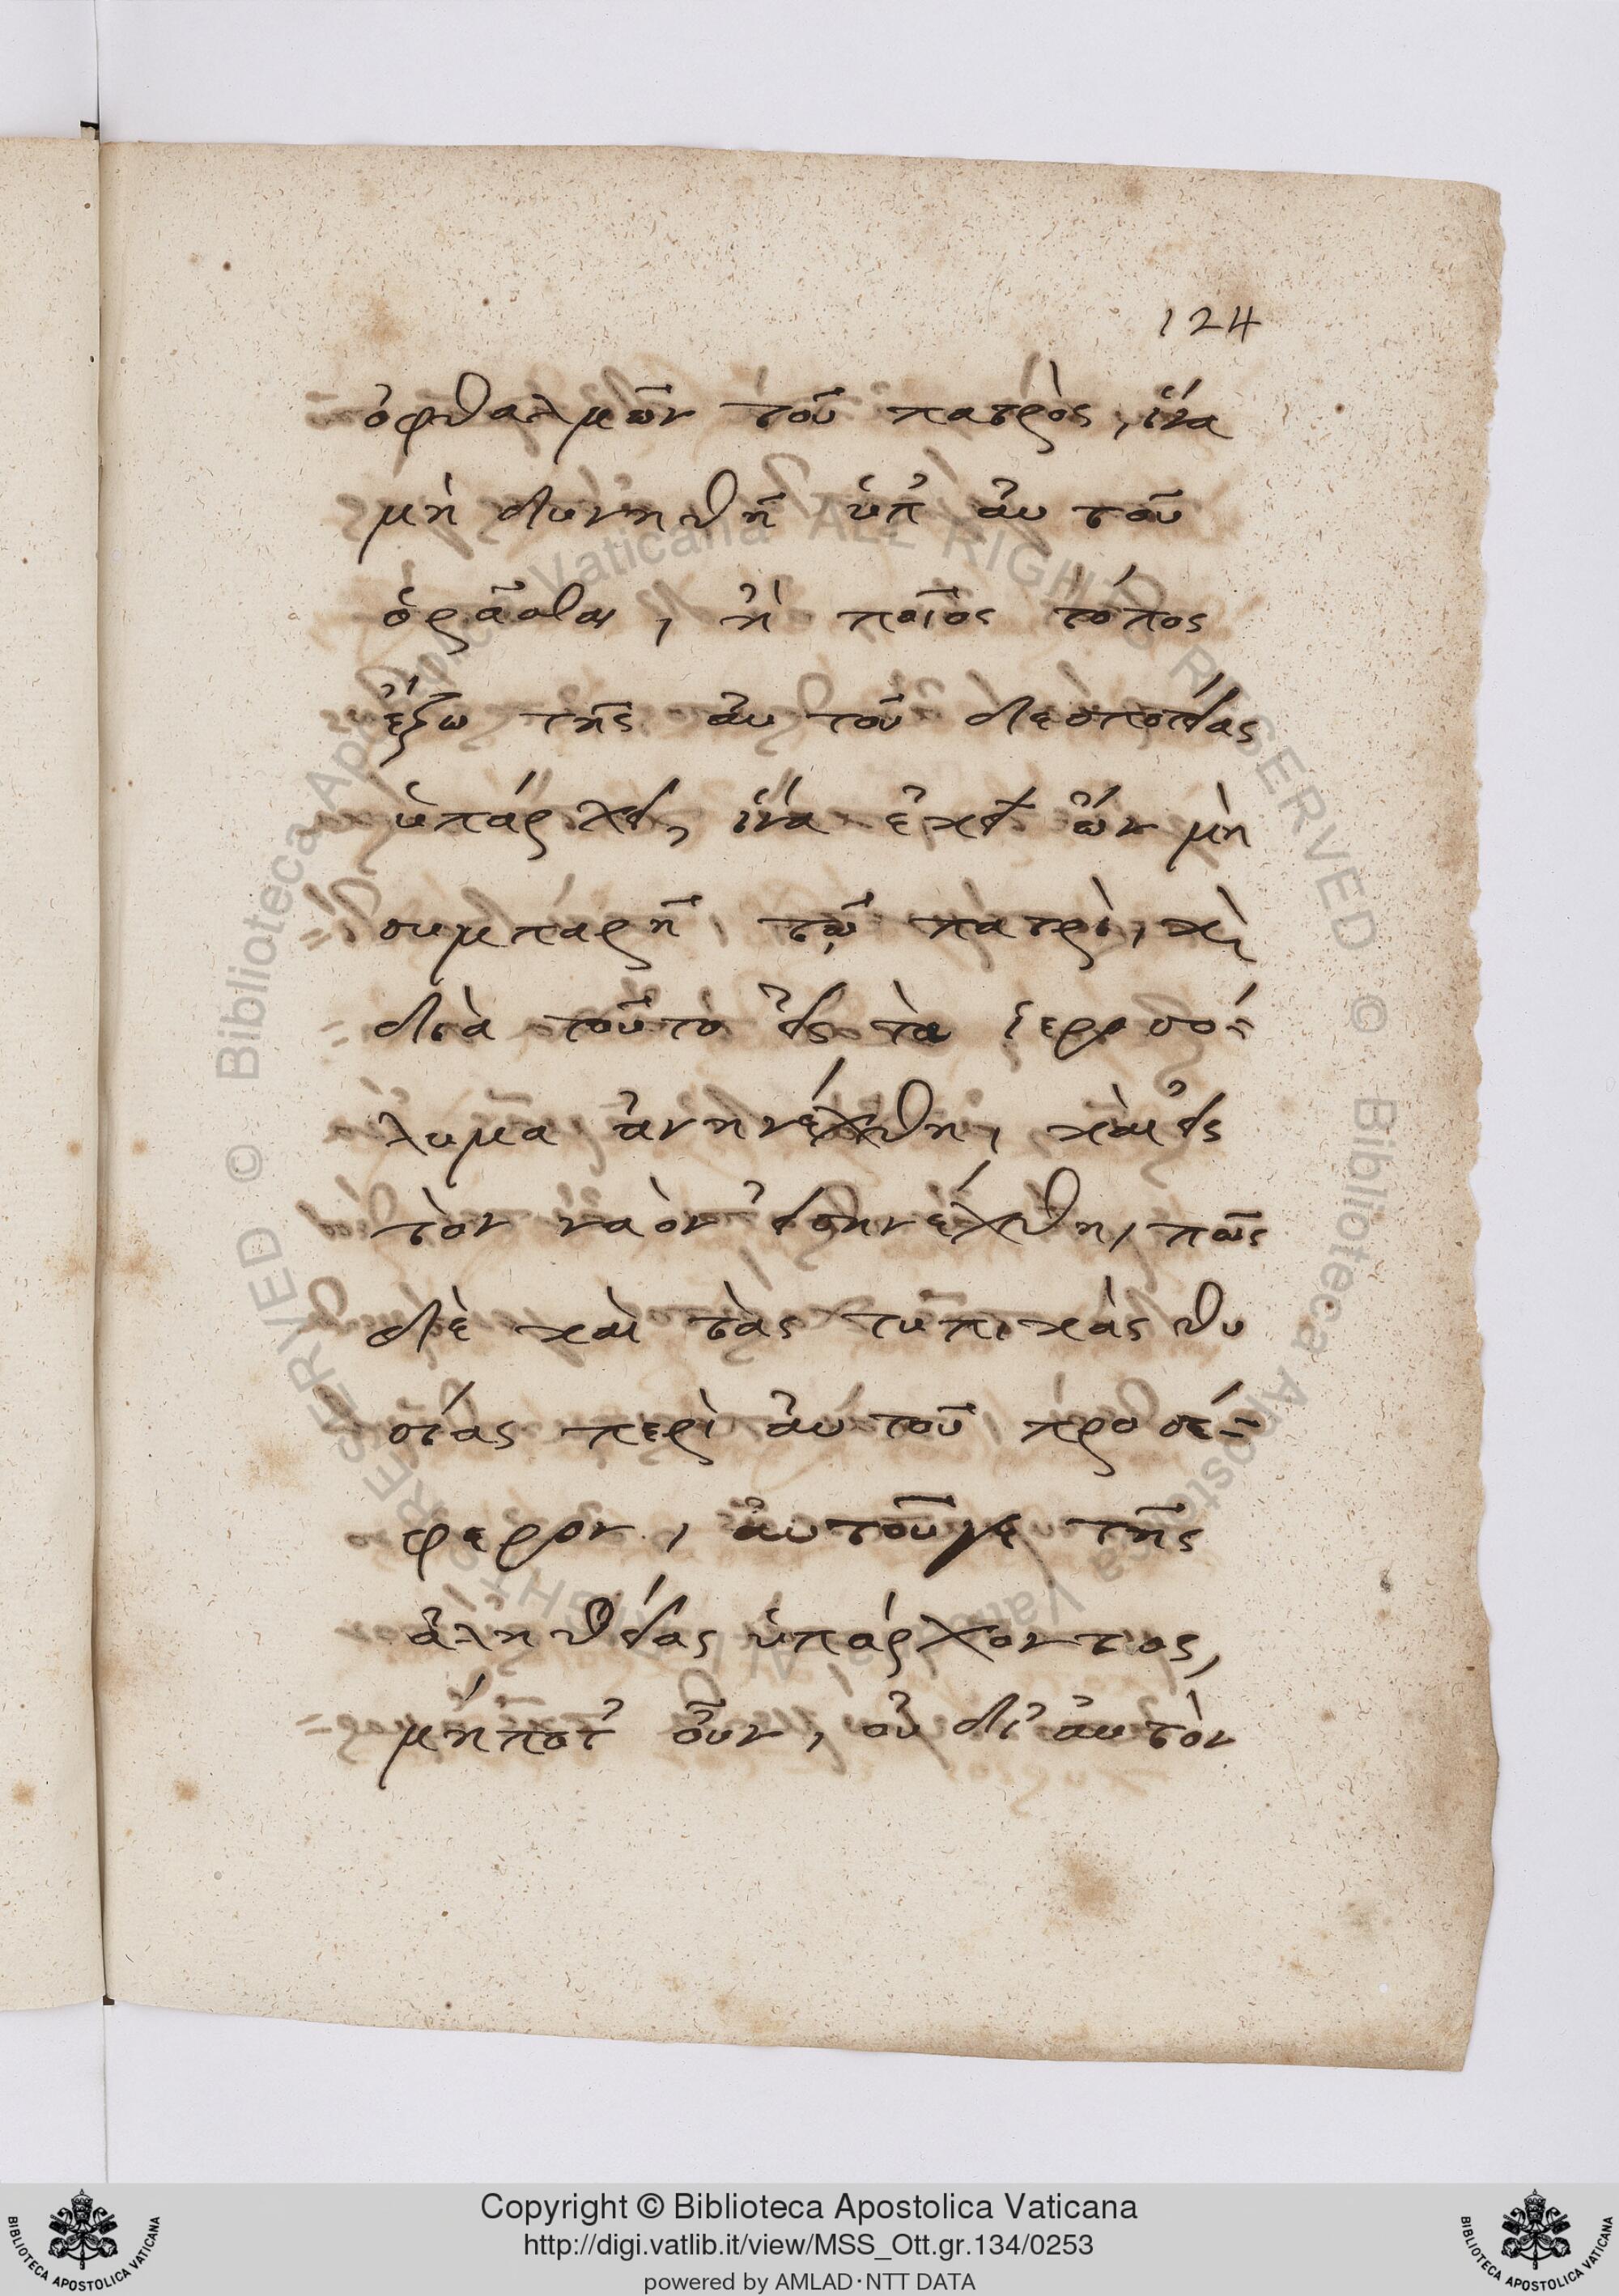 124
ὀφθαλμῶν τοῦ πατρὸς, ἵνα
μὴ δυνηθῆ ὑπ' ἀυτοῦ
ὁρᾶσθαι, ἢ ποῖος τόπος
ἔξω τῆς ἀυτοῦ δεσποτείας
ὑπάρχει, ἵνα ἐκεῖ ὢν μὴ
συμπαρῆ τῷ πατρὶ, κὶ
διὰ τοῦτο εἰς τὰ ἱεροσό-
λυμα ἀνηνέχθη, καὶ εἰς
τὸν ναὸν εἰσηνέχθη, πῶς
δὲ καὶ τὰς τυπικὰς θυ
σίας περὶ ἀυτοῦ προσέ=
φερον, ἀυτοῦγε τῆς
ἀληθείας ὑπάρχοντος,
μήποτ' οὖν, οὐ δι' ἀυτὸν
Copyright © Biblioteca Apostolica Vaticana
http://digi.vatlib.it/view/MSS_Ott.gr.134/0253
powered by AMLAD·NTT DATA
BIBLIOTECA APOSTOLICA VATICANA
BIBLIOTECA APOSTOLICA VATICANA